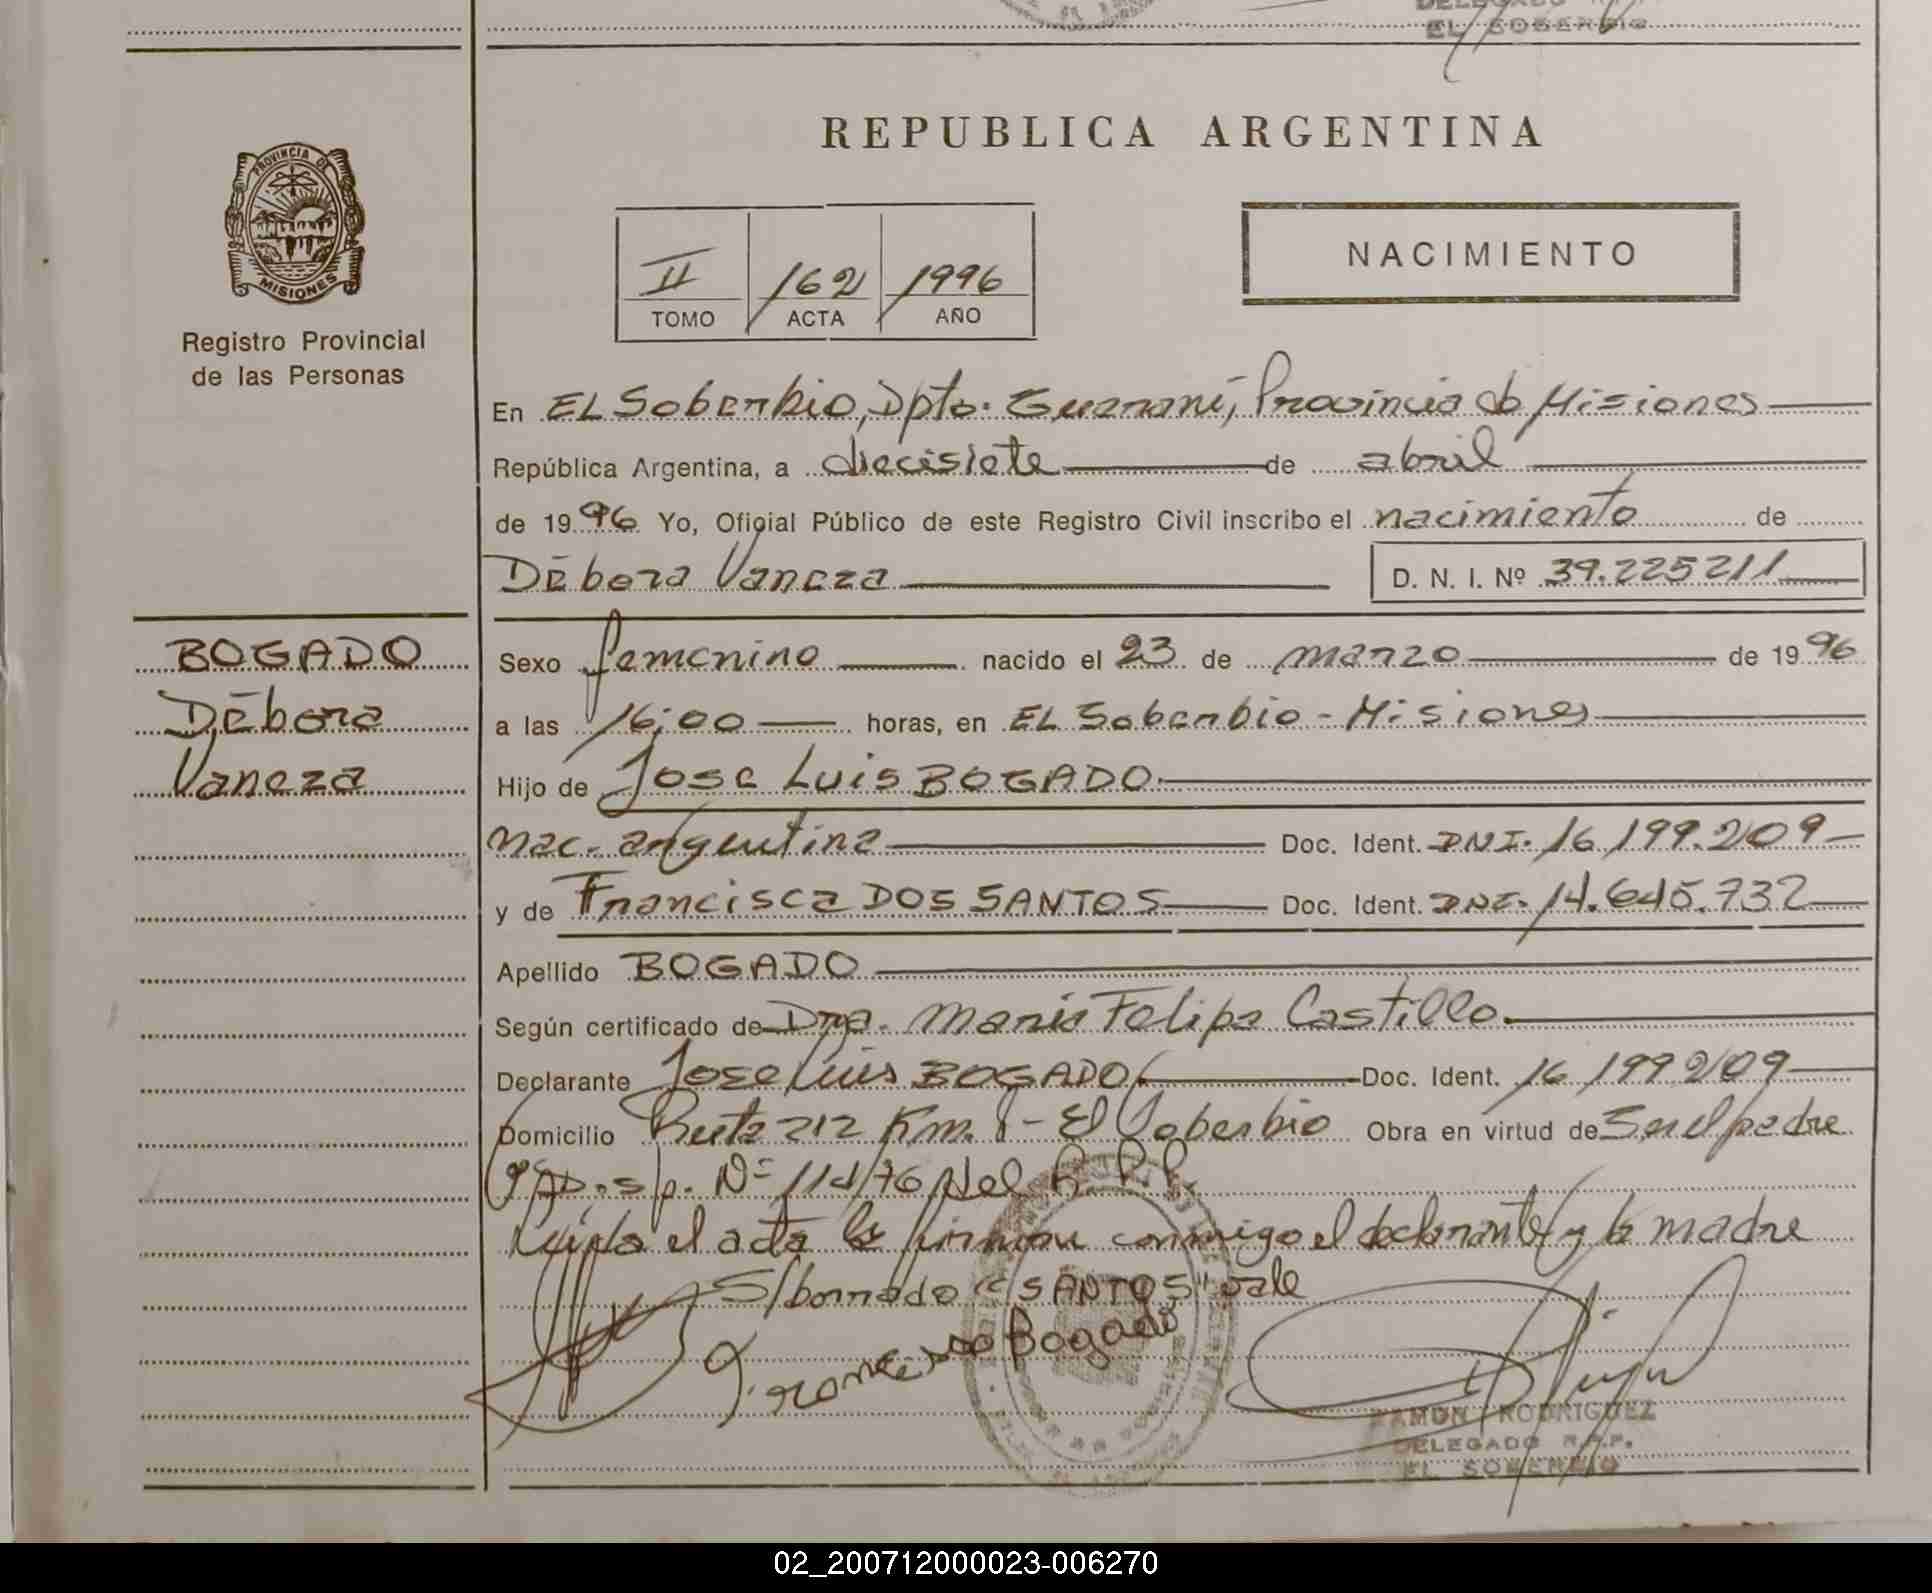 EL SOBERBIO
REPUBLICA ARGENTINA
PROVINCIA DE
MISIONES
Registro Provincial
de las Personas
II 162 1996
TOMO ACTA AÑO
NACIMIENTO
En EL Soberbio, Dpto. Guaraní, Provincia de Misiones
República Argentina, a diecisiete de abril
de 1996 Yo, Oficial Público de este Registro Civil inscribo el nacimiento de
Débora Vaneza D. N. I. Nº 39.225211
BOGADO
Débora
Vaneza
Sexo femenino nacido el 23 de marzo de 1996
a las 16:00 horas, en EL Soberbio - Misiones
Hijo de Jose Luis BOGADO
nac. argentina Doc. Ident. DNI. 16.199.209
y de Francisca DOS SANTOS Doc. Ident. DNI. 14.645.732
Apellido BOGADO
Según certificado de Dra. Maria Felipa Castillo.
Declarante Jose Luis BOGADO Doc. Ident. 16.199.209
Domicilio Ruta 212 Km. - El Soberbio Obra en virtud de Ser el padre
s/p. Nº /76 del R. P. P.
Leída el acta la firman conmigo el declarante y la madre
S/borrado "SANTOS" vale
Bogado
RAMON RODRIGUEZ
DELEGADO R.P.P.
EL SOBERBIO
02_200712000023-006270